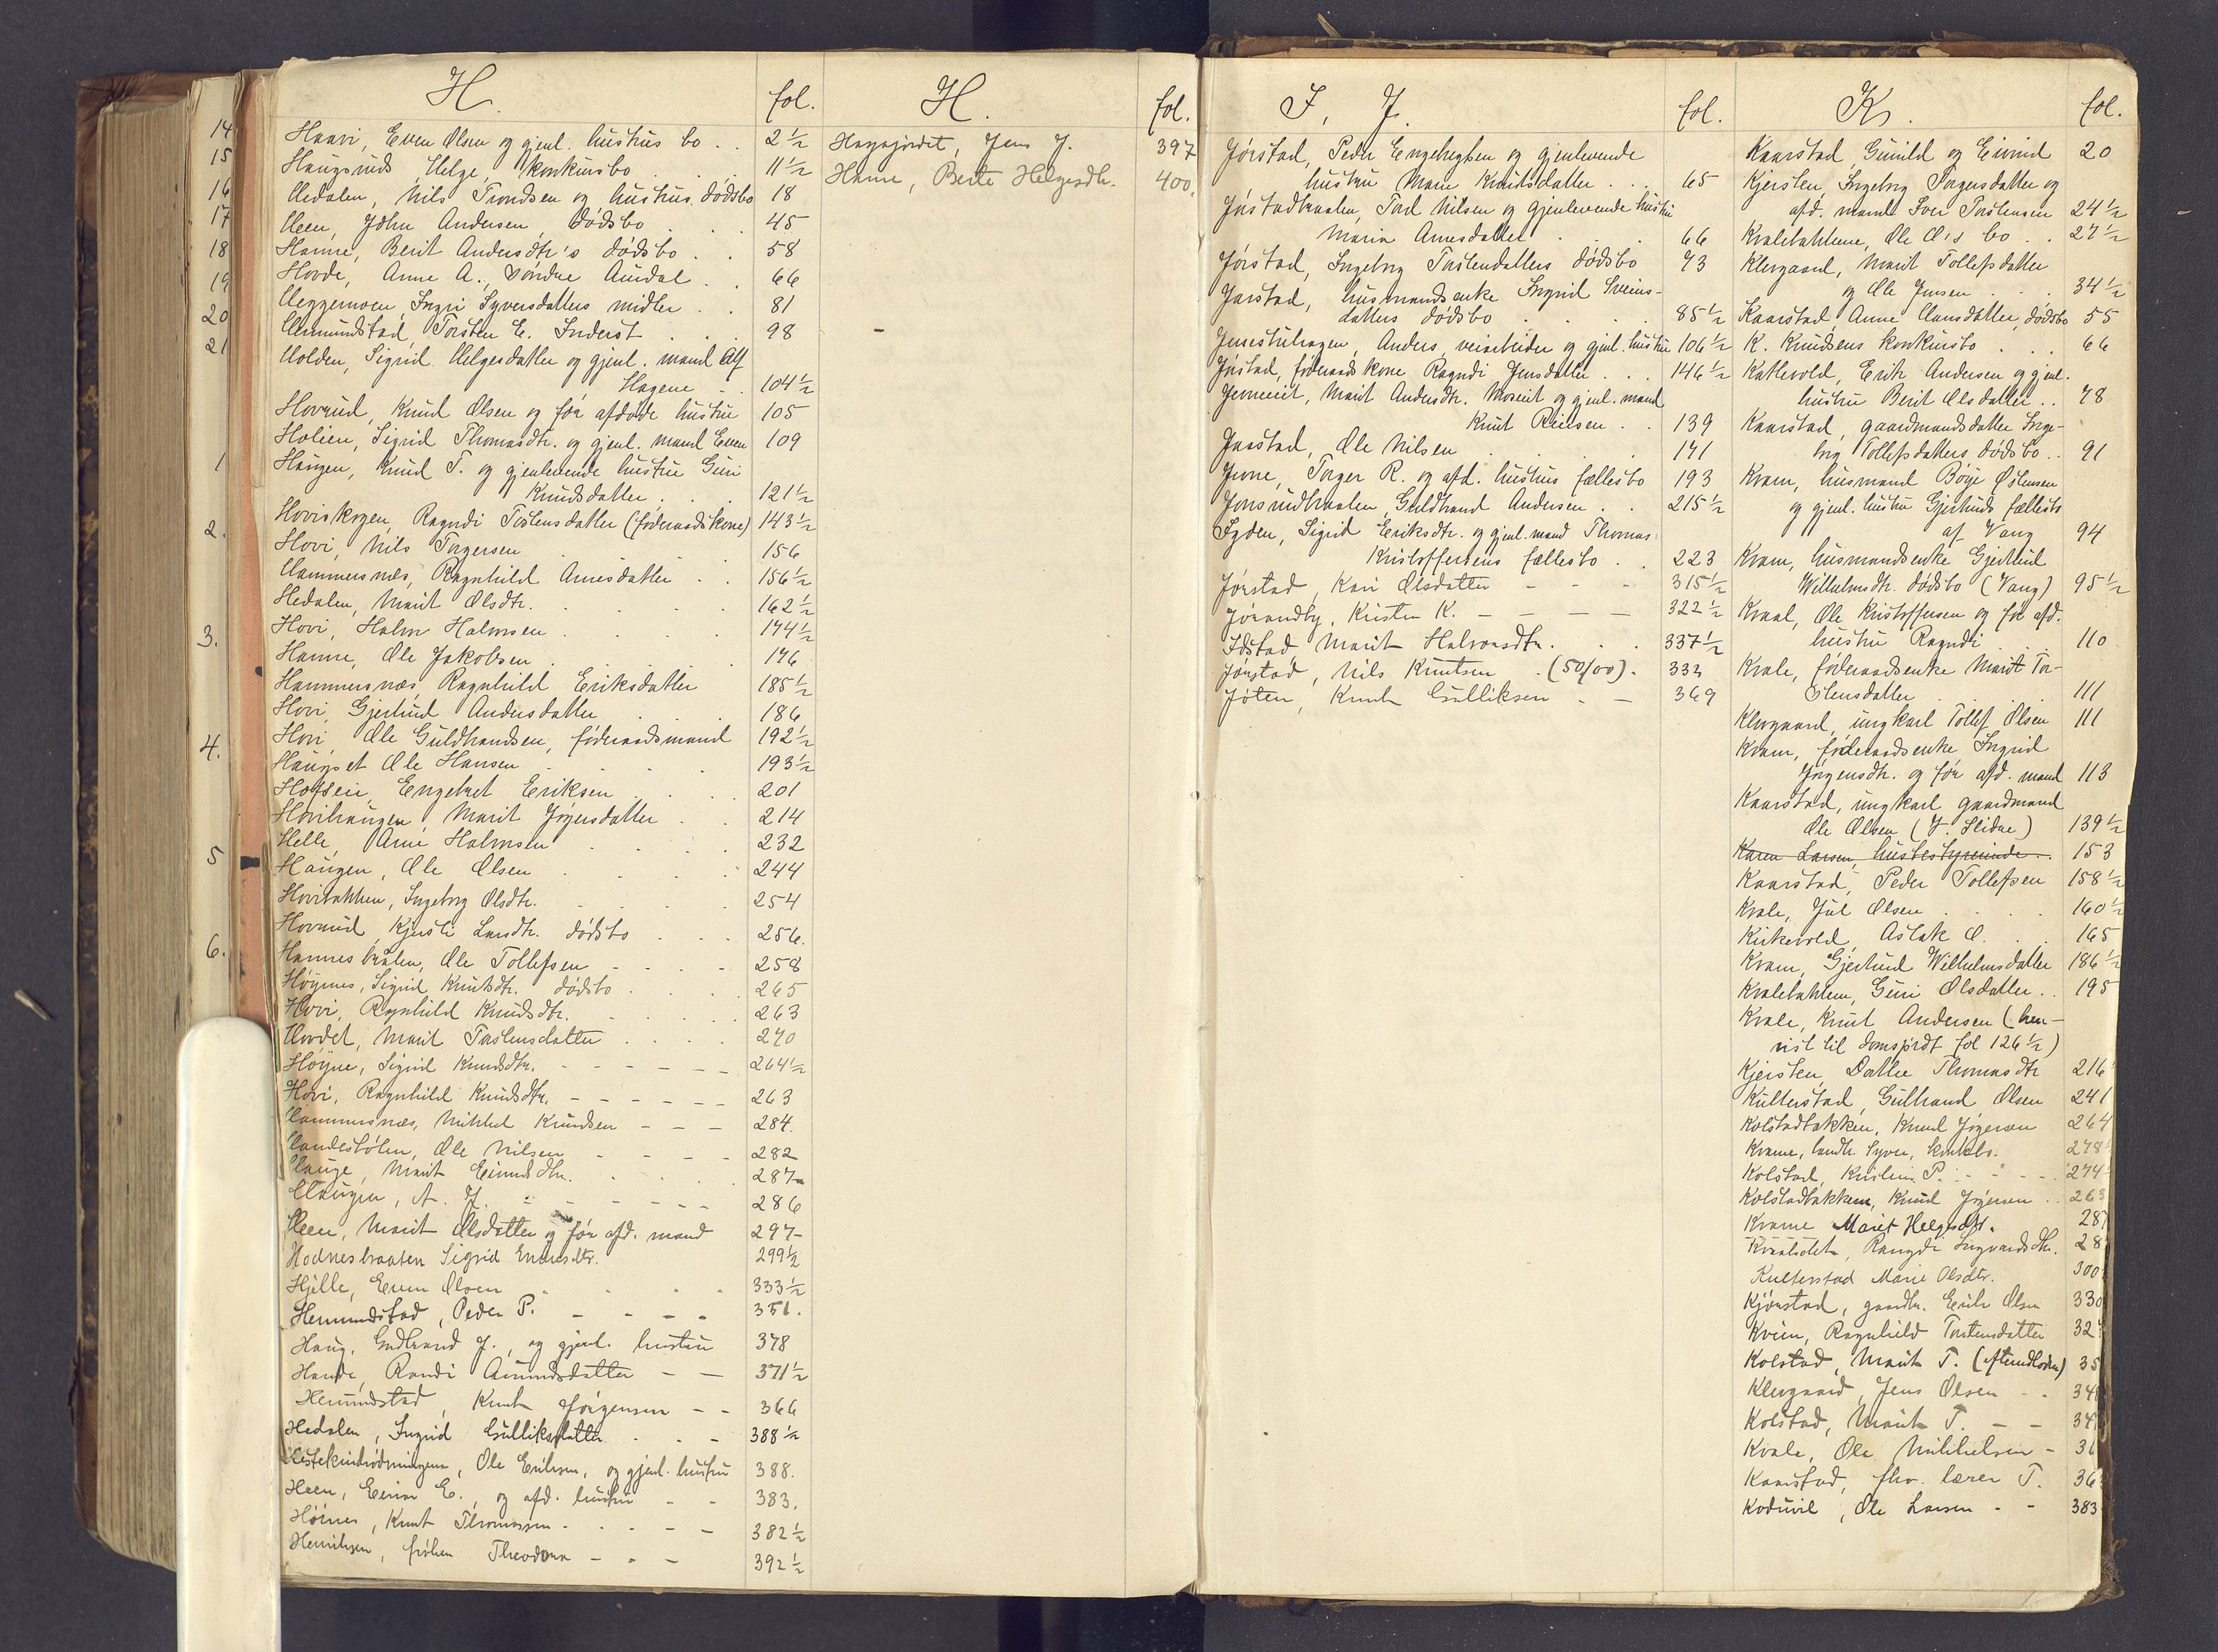 H. fol.
Haavi, Even Olsen og gjenl. hustrus bo . . 2 1/2
Haugsrud, Helge, konkursbo . . 11 1/2
Hedalen, Nils Trondsen og hustrus dødsbo 18
Heen, John Andersen, dødsbo . . 45
Hanne, Berit Andersdtr's dødsbo . . 58
Hovde, Anne A., Søndre Aurdal . . 66
Heggemoen, Ingri Syversdatters midler . . 81
Hemundstad, Torsten E. Inderst . . 98
Holden, Sigrid Helgesdatter og gjenl. mand Alf
Hagene . . 104 1/2
Hovrud, Knud Olsen og før afdøde hustru 105
Holien, Sigrid Thomasdtr. og gjenl. mand Even 109
Haugen, Knud T. og gjenlevende hustru Guri
Knudsdatter . . 121 1/2
Hoviskogen, Ragndi Torstensdatter (føderaadskone) 143 1/2
Hovi, Nils Torgersen 156
Hammersnæs, Ragnhild Arnesdatter . . 156 1/2
Hedalen, Marit Olsdtr. . . 162 1/2
Hovi, Halm Halmsen . . 174 1/2
Hanne, Ole Jakobsen . . 176
Hammersnæs, Ragnhild Eriksdatter 185 1/2
Hovi, Gjertrud Andersdatter . . 186
Hovi, Ole Guldbrandsen, føderaadsmand 192 1/2
Haugset Ole Hansen . . 193 1/2
Hofseie, Engebret Eriksen . . 201
Hovihaugen, Marit Jørgersdatter . . 214
Helle, Arne Halmsen . . 232
Haugen, Ole Olsen . . 244
Hovibakken, Ingeborg Olsdtr. . . 254
Hovrud Kjersti Larsdtr. dødsbo . . 256.
Hannesbråten, Ole Tollefsen . . 258
Høynes, Sigrid Knutsdtr. dødsbo . . 265
Hovi, Ragnhild Knudsdtr. . . 263
Hovdet, Marit Torstensdatter . . 270
Høyne, Sigrid Knudsdtr. - - 264 1/2
Hovi, Ragnhild Knudsdtr. - - 263
Hammersnæs, Mikkel Knudsen - - 284.
Handestølen, Ole Nilsen - - 282
Hauge, Marit Eivindsdtr. . . 287
Haugen, A. J. - - 286
Heen, Marit Olsdatter og før afd. mand 297
Hodnesbraaten Sigrid Endresdtr. 299 1/2
Hjelle, Even Olsen . . 333 1/2
Hemundstad, Peder P. - - 351.
Haug, Gudbrand J., og gjenl. hustru 378
Hande, Randi Amundsdatter - - 371 1/2
Hemundstad, Knut Jørgensen - - 366
Hedalen, Ingrid Gulliksdatter . . - 388 1/2
Ole Eriksen, og gjenl. hustru 388.
Heen, Eivin E., og afd. hustru - - 383.
Høines, Knut Thomassen - - 382 1/2
Henriksen, frøken Theodora - - 392 1/2
H. fol.
Hagajordet, Jens J. 397
Hanne, Berte Helgesdtr. 400.
I, J. fol.
Jørstad, Peder Engebregtsen og gjenlevende
hustru Marie Knudsdatter . . 65
Jørstadbraaten, Tord Nilsen og gjenlevende hustru
Maria Arnesdatter . . 66
Jørstad, Ingeborg Torstendatters dødsbo 73
Jarstad, husmandsenke Ingrid Sveins-
datters dødsbo . . 85 1/2
Anders, veiarbeider og gjenl. hustru 106 1/2
Jørstad, føderaadskone Ragndi Jensdatter . . 146 1/2
Marit Andersdtr. og gjenl. mand
Knut . . 139
Jarstad, Ole Nilsen . . 171
Juvne, Torger R. og afd. hustrus fællesbo 193
Jonsrudbraaten, Guldbrand Andersen . . 215 1/2
Igden, Sigrid Eriksdtr. og gjenl. mand Thomas
Kristoffersens fællesbo . . 223
Jørstad, Kari Olsdatter - - 315 1/2
Jørandby, Kristen K. - - - - 322 1/2
Idstad, Marit Halvorsdtr. . . 337 1/2
Jørstad, Nils Knutsen (50/00) . 333
Jøten, Knut Gulliksen - - 369
K. fol.
Kaarstad, Gunild og Eivind 20
Kjersten, Ingeborg Torgersdatter og
afd. mand Iver Torstensen 24 1/2
Kvalebakkene, Ole O's bo . . 27 1/2
Klevgaard, Marit Tollefsdatter
og Ole Jensen . . 34 1/2
Kaarstad, Anne Hansdatter, dødsbo 55
K. Knudsens konkursbo . . 66
Kattevold, Erik Andersen og gjenl.
hustru Berit Olsdatter . . 78
Kaarstad, gaardmandsdatter Inge-
borg Tollefsdatters dødsbo . . 91
Kvam, husmand Børge Østensen
og gjenl. hustru Gjertruds fællesbo
af Vang 94
Kvam, husmandsenke Gjertrud
Wilhelmsdtr. dødsbo (Vang) 95 1/2
Kraal, Ole Kristoffersen og før afd.
hustru Ragndi . . 110
Kvale, føderaadsenke Marit Tor-
stensdatter . . 111
Klevgaard, ungkarl Tollef Olsen 111
Kvam, føderaadsenke Ingrid
Jørgensdtr. og før afd. mand 113
Kaarstad, ungkarl gaardmand
Ole Olsen (V. Slidre) 139 1/2
Karen Larsen, husbestyrerinde . . 153
Kaarstad, Peder Tollefsen 158 1/2
Kvale, Jul Olsen . . 160 1/2
Kirkevold, Aslak O. . . 165
Kvam, Gjertrud Wilhelmsdatter 186 1/2
Kvalebakken, Guri Olsdatter . . 195
Kvale, Knut Andersen (hen-
vist til fol 126 1/2)
Kjersten, Dortha Thomasdtr 216
Kulterstad, Gulbrand Olsen 241
Kolstadbakken, Knud Jørgersen 264
Kvame, landh. Syver, konkbo. 278
Kolstad, Kristine P. - - 274
Kolstadbakken, Knud Jørgersen . . 263
Kvame Marit Helgesdtr. 28
Ragndi Ingvardsdtr. 28
Kulterstad Marie Olsdtr. 300
Kjørstad, gaardbr. Erik Olsen 330
Kvien, Ragnhild Torstensdatter 32
Kolstad, Marit T. 35
Klevgaard, Jens Olsen - - 34
Kolstad, Marit T. - - 34
Kvale, Ole Mikkelsen - 36
Kaarstad, fhv. lærer T. 36
Koduvil, Ole Larsen - - 383
14
15
16
17
18
19
20
21
1
2.
3.
4.
5
6.